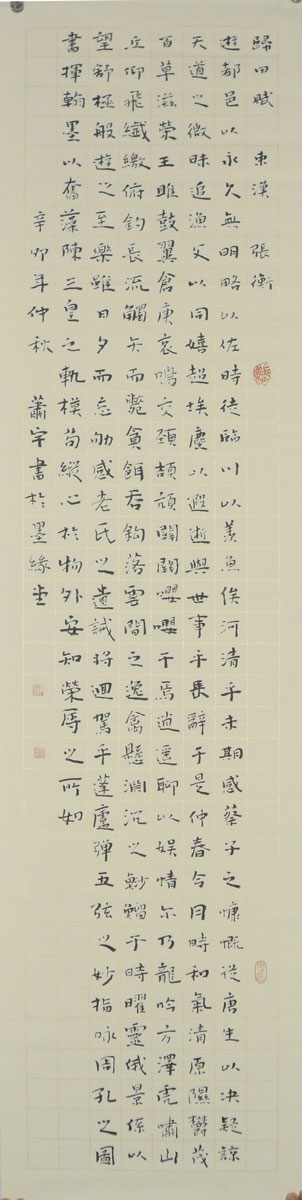 歸田賦　東漢　張衡
遊都邑以永久無明略以佐時徒臨川以羨魚俟河清乎未期感蔡子之慷慨從唐生以決疑諒
天道之微昧追漁父以同嬉超埃塵以遐逝與世事乎長辭于是仲春令月時和氣清原隰鬱茂
百草滋榮王雎鼓翼倉庚哀鳴交頸頡頏關關嚶嚶于焉逍遥聊以娱情尔乃龍吟方澤虎嘯山
丘仰飛纖繳俯釣長流觸矢而斃貪餌吞鉤落雲間之逸禽懸淵沉之魦鰡于時曜靈俄景係以
望舒極般遊之至樂雖日夕而忘劬感老氏之遺誡將迴駕乎蓬廬彈五弦之妙指咏周孔之圖
書揮翰墨以奮藻陳三皇之軌模苟縱心於物外安知榮辱之所如
辛卯年仲秋　蕭宇書於墨緣堂